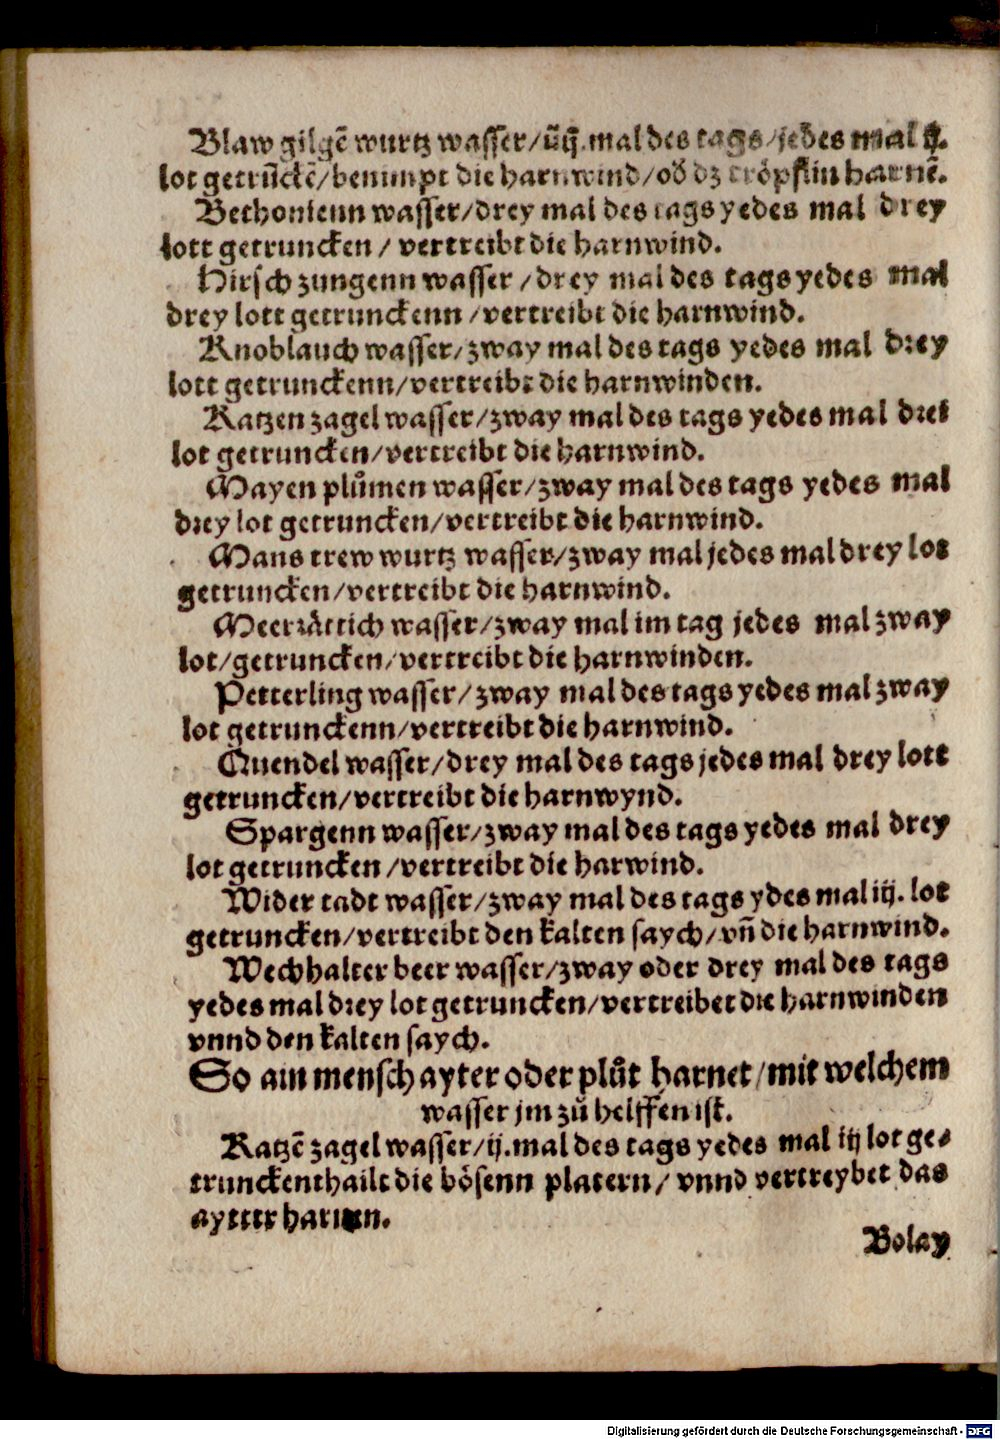 Blaw gilgē wurtz wasser/ mal des tags/jedes mal ij.
lot getrūckē/benimpt die harnwind/od dz tröpflin harnē.
Bethonienn wasser/drey mal des tags yedes mal drey
lott getruncken/ vertreibt die harnwind.
Hirsch zungenn wasser/drey mal des tags yedes mal
drey lott getrunckenn/vertreibt die harnwind.
Knoblauch wasser/zway mal des tags yedes mal drey
lott getrunckenn/vertreibt die harnwinden.
Katzen zagel wasser/zway mal des tags yedes mal drei
lot getruncken/vertreibt die harnwind.
Mayen plůmen wasser/zway mal des tags yedes mal
drey lot getruncken/vertreibt die harnwind.
Mans trew wurtz wasser/zway mal jedes mal drey lot
getruncken/vertreibt die harnwind.
Meerrättich wasser/zway mal im tag jedes mal zway
lot/getruncken/vertreibt die harnwinden.
Petterling wasser/zway mal des tags yedes mal zway
lot getrunckenn/vertreibt die harnwind.
Quendel wasser/drey mal des tags jedes mal drey lott
getruncken/vertreibt die harnwynd.
Spargenn wasser/zway mal des tags yedes mal drey
lot getruncken/vertreibt die harwind.
Wider tadt wasser/zway mal des tags ydes mal iij. lot
getruncken/vertreibt den kalten saych/vñ die harnwind.
Wechhalter beer wasser/zway oder drey mal des tags
yedes mal drey lot getruncken/vertreibet die harnwinden
vnnd den kalten saych.
So ain mensch ayter oder plůt harnet/mit welchem
wasser jm zů helffen ist.
Katzē zagel wasser/ij.mal des tags yedes mal iij lot ge⸗
trunckenthailt die bösenn platern/ vnnd vertreybet das
aytter harnen.
Bolay
Digitalisierung gefördert durch die Deutsche Forschungsgemeinschaft - DFG